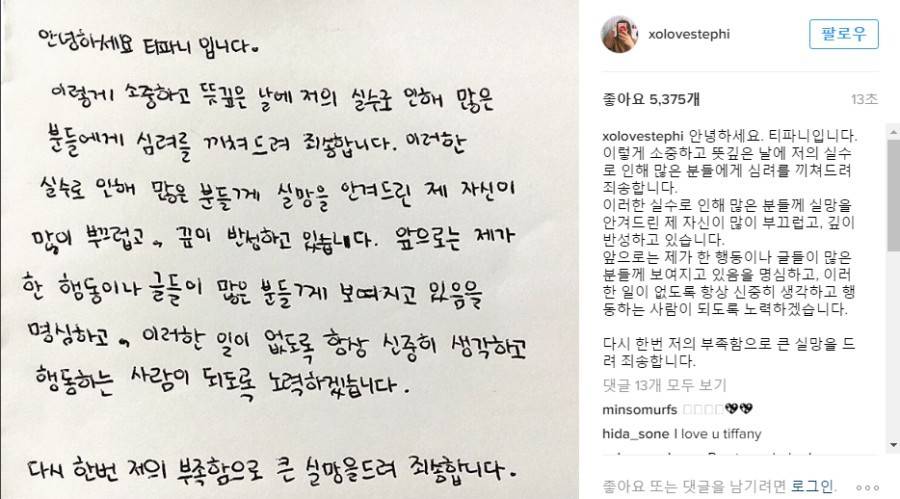 안녕하세요 티파니 입니다.
이렇게 소중하고 뜻깊은 날에 저의 실수로 인해 많은
분들에게 심려를 끼쳐드려 죄송합니다. 이러한
실수로 인해 많은 분들께 실망을 안겨드린 제 자신이
많이 부끄럽고, 깊이 반성하고 있습니다. 앞으로는 제가
한 행동이나 글들이 많은 분들께 보여지고 있음을
명심하고, 이러한 일이 없도록 항상 신중히 생각하고
행동하는 사람이 되도록 노력하겠습니다.
다시 한번 저의 부족함으로 큰 실망을드려 죄송합니다.
xolovestephi
팔로우
좋아요 5,375개
13초
xolovestephi 안녕하세요. 티파니입니다.
이렇게 소중하고 뜻깊은 날에 저의 실수
로 인해 많은 분들에게 심려를 끼쳐드려
죄송합니다.
이러한 실수로 인해 많은 분들께 실망을
안겨드린 제 자신이 많이 부끄럽고, 깊이
반성하고 있습니다.
앞으로는 제가 한 행동이나 글들이 많은
분들께 보여지고 있음을 명심하고, 이러
한 일이 없도록 항상 신중히 생각하고 행
동하는 사람이 되도록 노력하겠습니다.
다시 한번 저의 부족함으로 큰 실망을 드
려 죄송합니다.
댓글 13개 모두 보기
minsomurfs
hida_sone I love u tiffany
좋아요 또는 댓글을 남기려면 로그인.